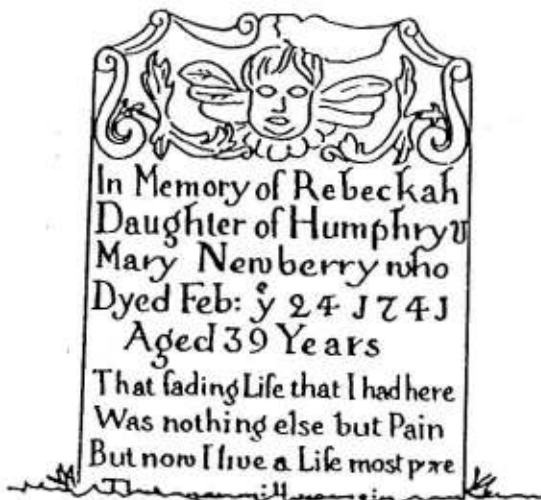 In Memory of Rebeckah
Daughter of Humphry &
Mary Newberry who
Dyed Feb: yͤ 24 1741
Aged 39 Years
That fading Life that I had here
Was nothing else but Pain
But now I live a Life most pure